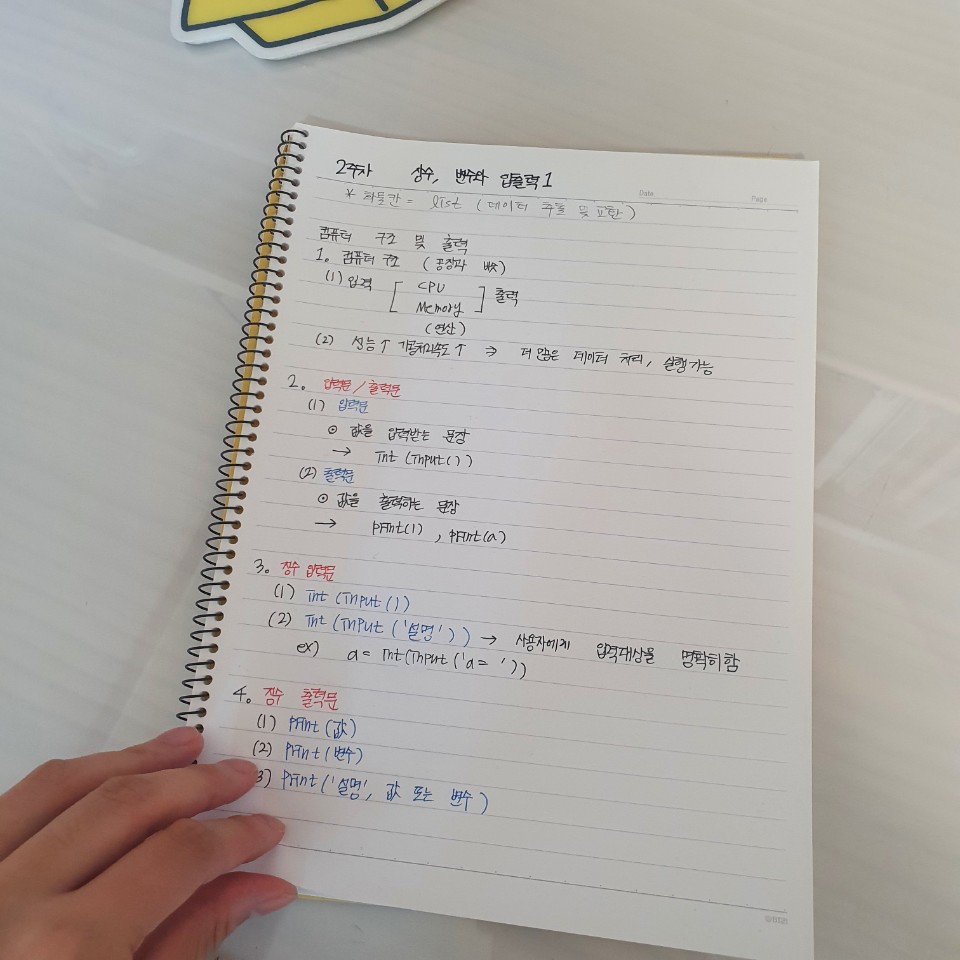 2주차 상수, 변수와 입출력 1
Date Page
* 사물칸 = list (데이터 추출 및 교환)
컴퓨터 구조 및 출력
1. 컴퓨터 구조 (공장과 비슷)
(1) 입력 [ CPU
Memory ] 출력
(연산)
(2) 성능↑ 기본처리속도↑ ⇒ 더 많은 데이터 처리, 실행가능
2. 입력문 / 출력문
(1) 입력문
⊙ 값을 입력받는 문장
→ Int (Input())
(2) 출력문
⊙ 값을 출력하는 문장
→ print(1), print(a)
3. 정수 입력문
(1) Int (Input())
(2) Int (Input('설명')) → 사용자에게 입력대상을 명확히 함
ex) a = Int(Input('a = '))
4. 정수 출력문
(1) print(값)
(2) print(변수)
3) print('설명', 값 또는 변수)